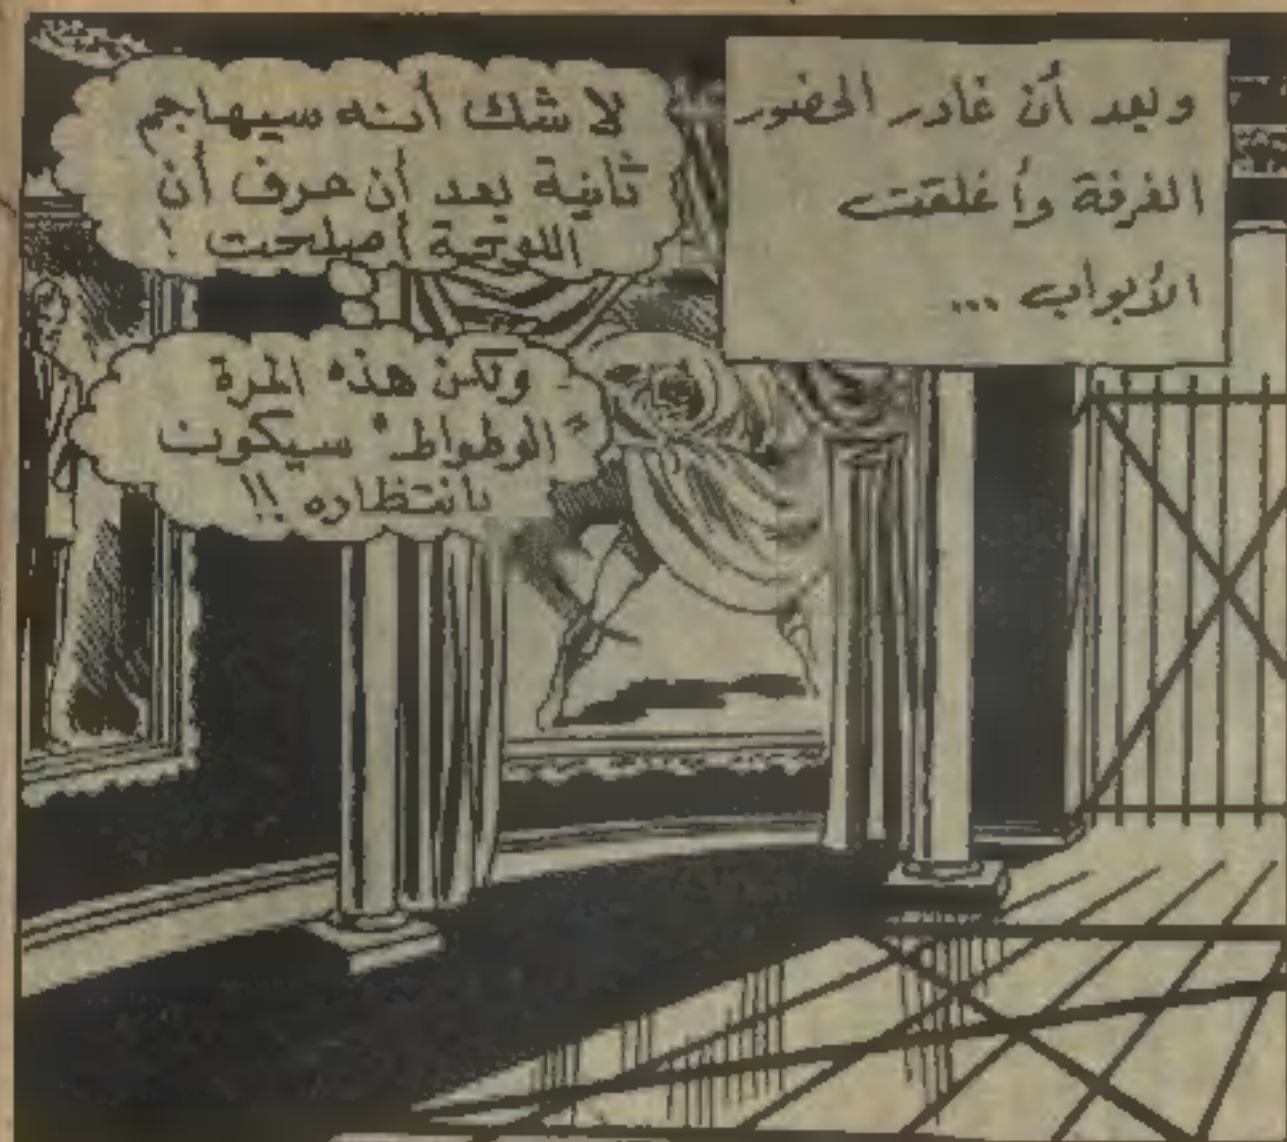 وبعد أن غادر الحضور
الغرفة وأغلقت
الأبواب ...
لا شك أنه سيهاجم
ثانية بعد أن عرف أن
اللوحة أصلحت !
ولكن هذه المرة
"الوطواط" سيكون
بانتظاره !!